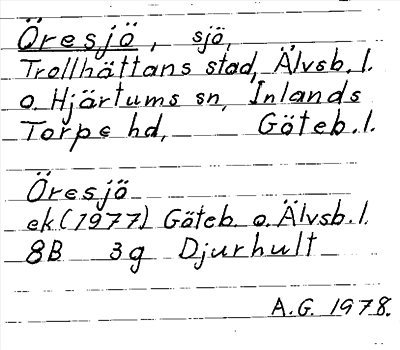 Öresjö, sjö,
Trollhättans stad, Älvsb. l.
o. Hjärtums sn, Inlands
Torpe hd, Göteb. l.
Öresjö
ek (1977) Göteb. o. Älvsb. l.
8B 3g Djurhult
A.G. 1978.